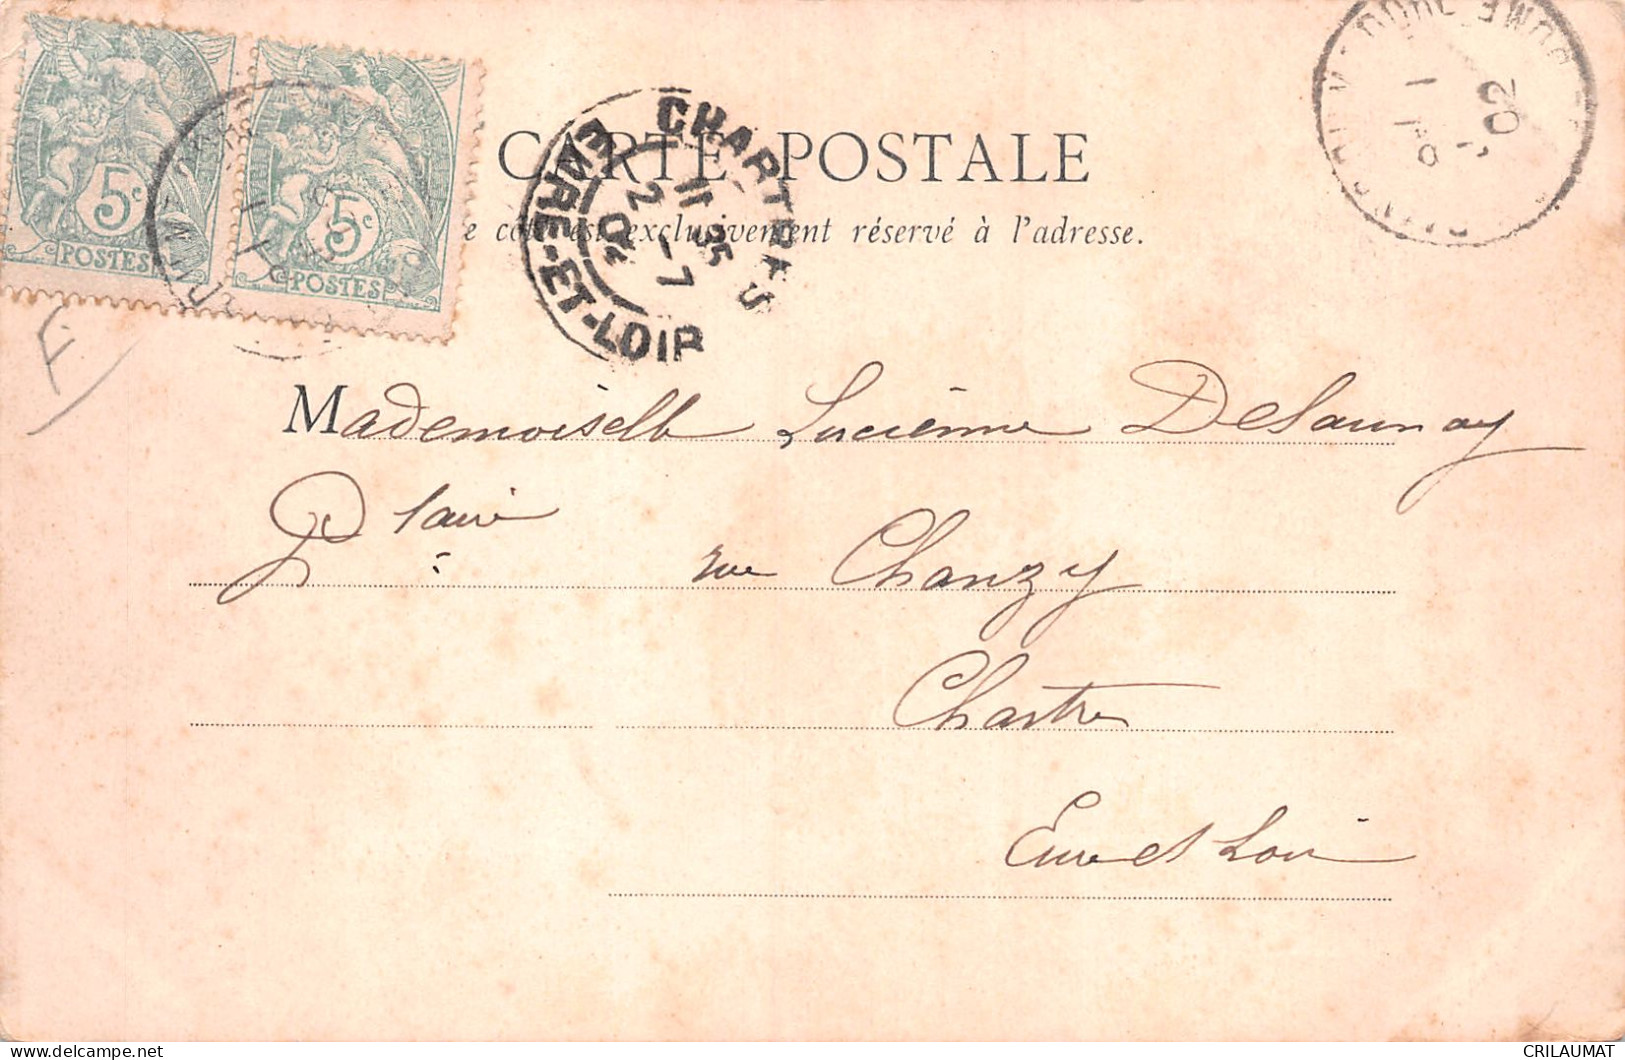 5c 5c
POSTES POSTES
CARTE POSTALE
e côté est exclusivement réservé à l'adresse.
CHARTRES
11 35
2 - 7
02
EURE-ET-LOIR
DOME
02
F.
Mademoiselle Lucienne Delaunay
Pl
rue Chanzy
Chartres
Eure et Loir
CRILAUMAT